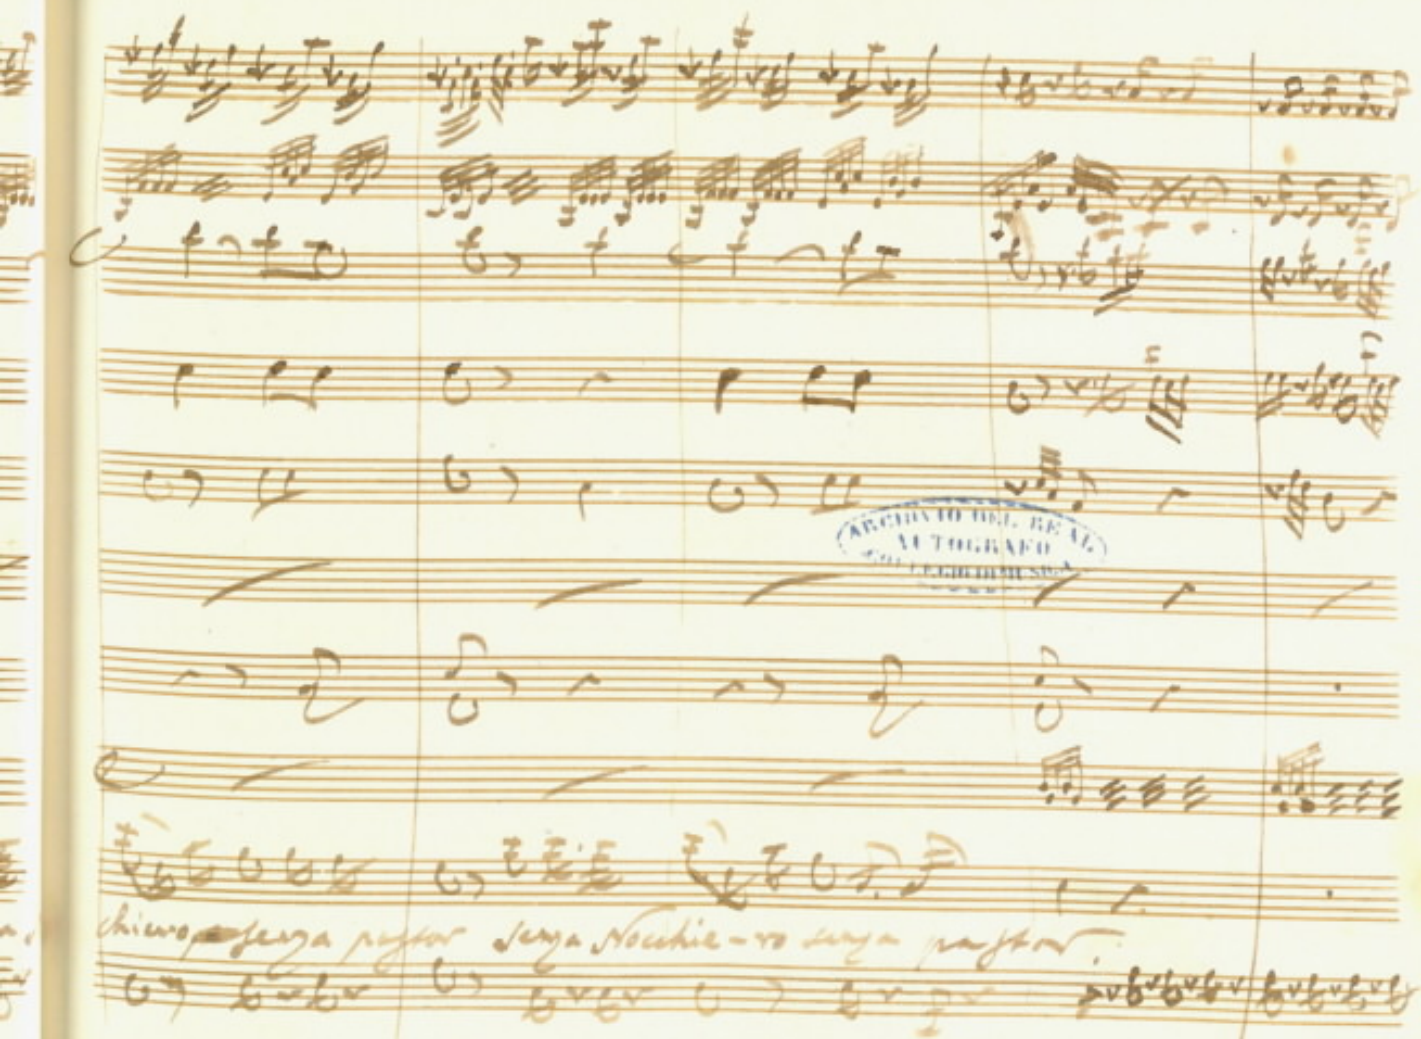 ARCHIVIO DEL REAL
AUTOGRAFO
COLLEGIO DI MUSICA
chiero senza pastor senza Nocchie-ro senza pastor